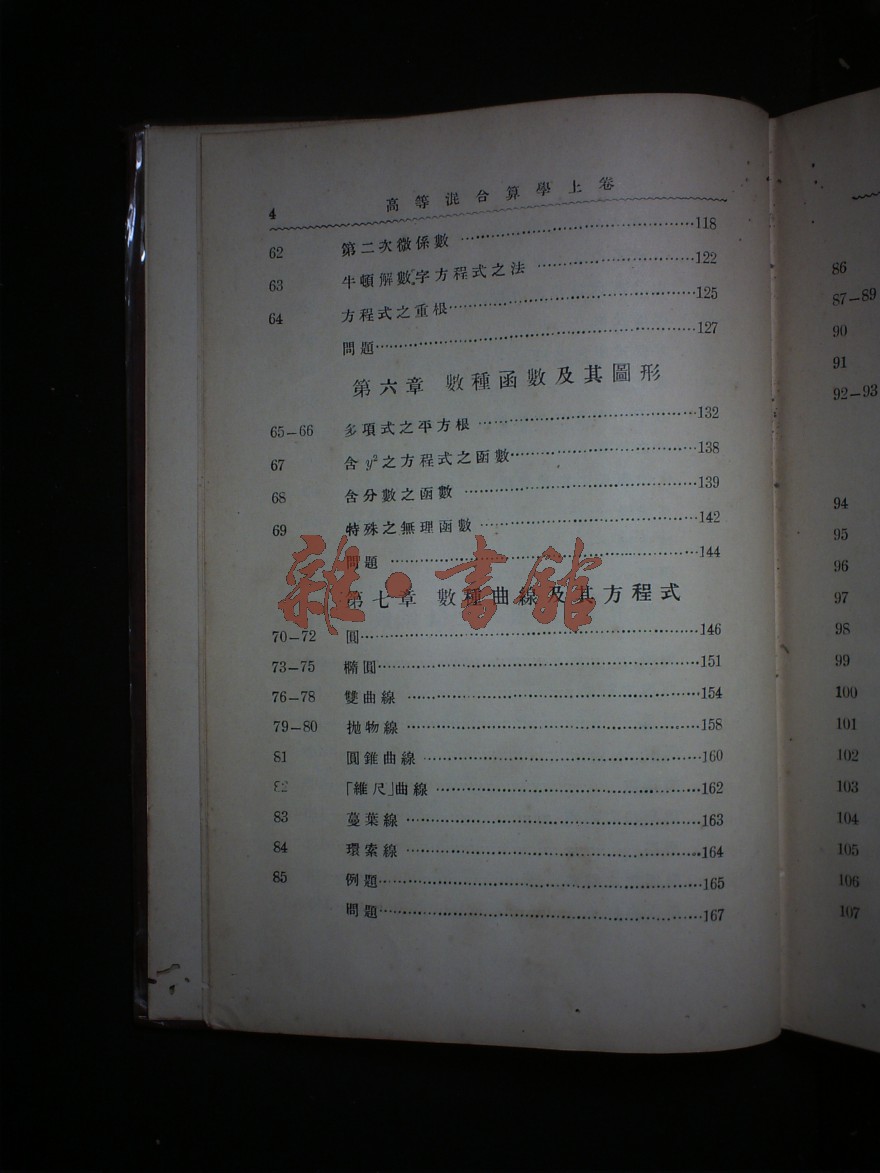 4 高等混合算學上卷
62 第二次微係數 118
63 牛頓解數字方程式之法 122
64 方程式之重根 125
問題 127
第六章 數種函數及其圖形
65–66 多項式之平方根 132
67 含 y² 之方程式之函數 138
68 含分數之函數 139
69 特殊之無理函數 142
問題 144
第七章 數種曲線及其方程式
70–72 圓 146
73–75 橢圓 151
76–78 雙曲線 154
79–80 拋物線 158
81 圓錐曲線 160
82 「維尺」曲線 162
83 蔓葉線 163
84 環索線 164
85 例題 165
問題 167
雜·書館
86
87–89
90
91
92–93
94
95
96
97
98
99
100
101
102
103
104
105
106
107